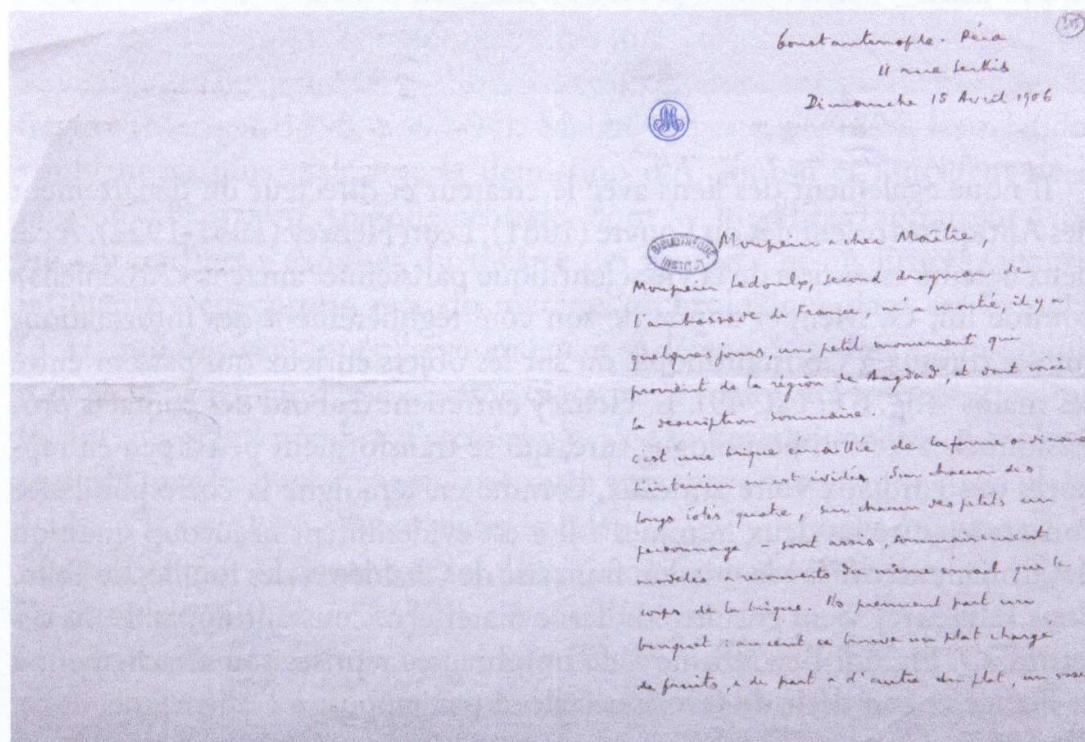 205
Constantinople - Péra
11 rue Serkis
Dimanche 15 Avril 1906
BIBLIOTHEQUE
INSTITUT
Monsieur & cher Maître,
Monsieur Ledoulx, second drogman de
l'ambassade de France, m'a montré, il y a
quelques jours, un petit monument qui
provient de la région de Bagdad, et dont voici
la description sommaire.
C'est une brique émaillée de la forme ordinaire
L'intérieur en est évidé. Sur chacun des
longs côtés quatre, sur chacun des petits un
personnage - sont assis, sommairement
modelés & recouverts du même émail que le
corps de la brique. Ils prennent part un
banquet : au centre se trouve un plat chargé
de fruits, & de part & d'autre du plat, un vase